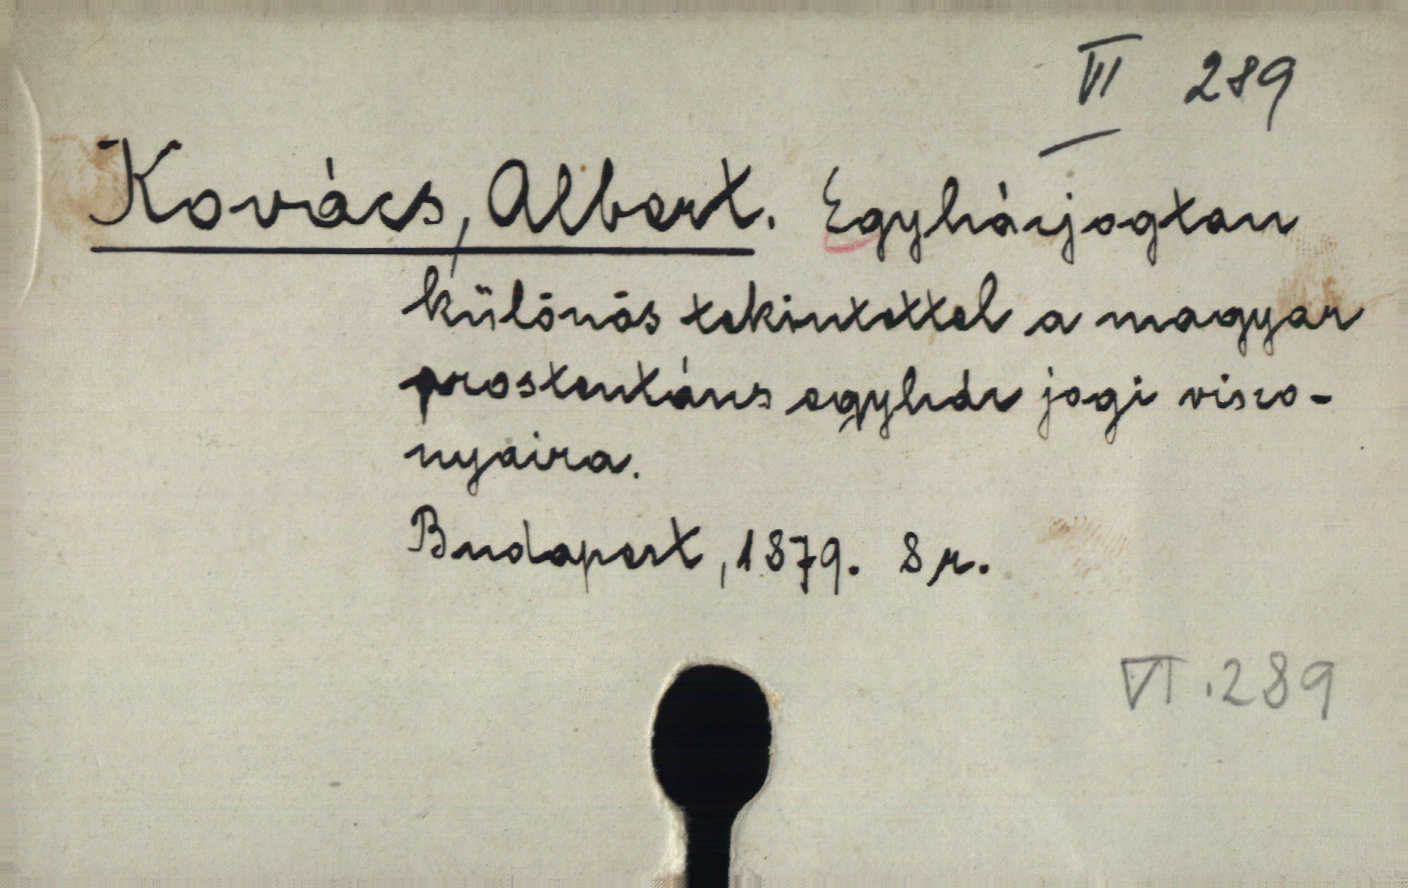 VI 289
Kovács, Albert. Egyházjogtan
különös tekintettel a magyar
prostentáns egyház jogi viszo-
nyaira.
Budapest, 1879. 8 r.
VI. 289